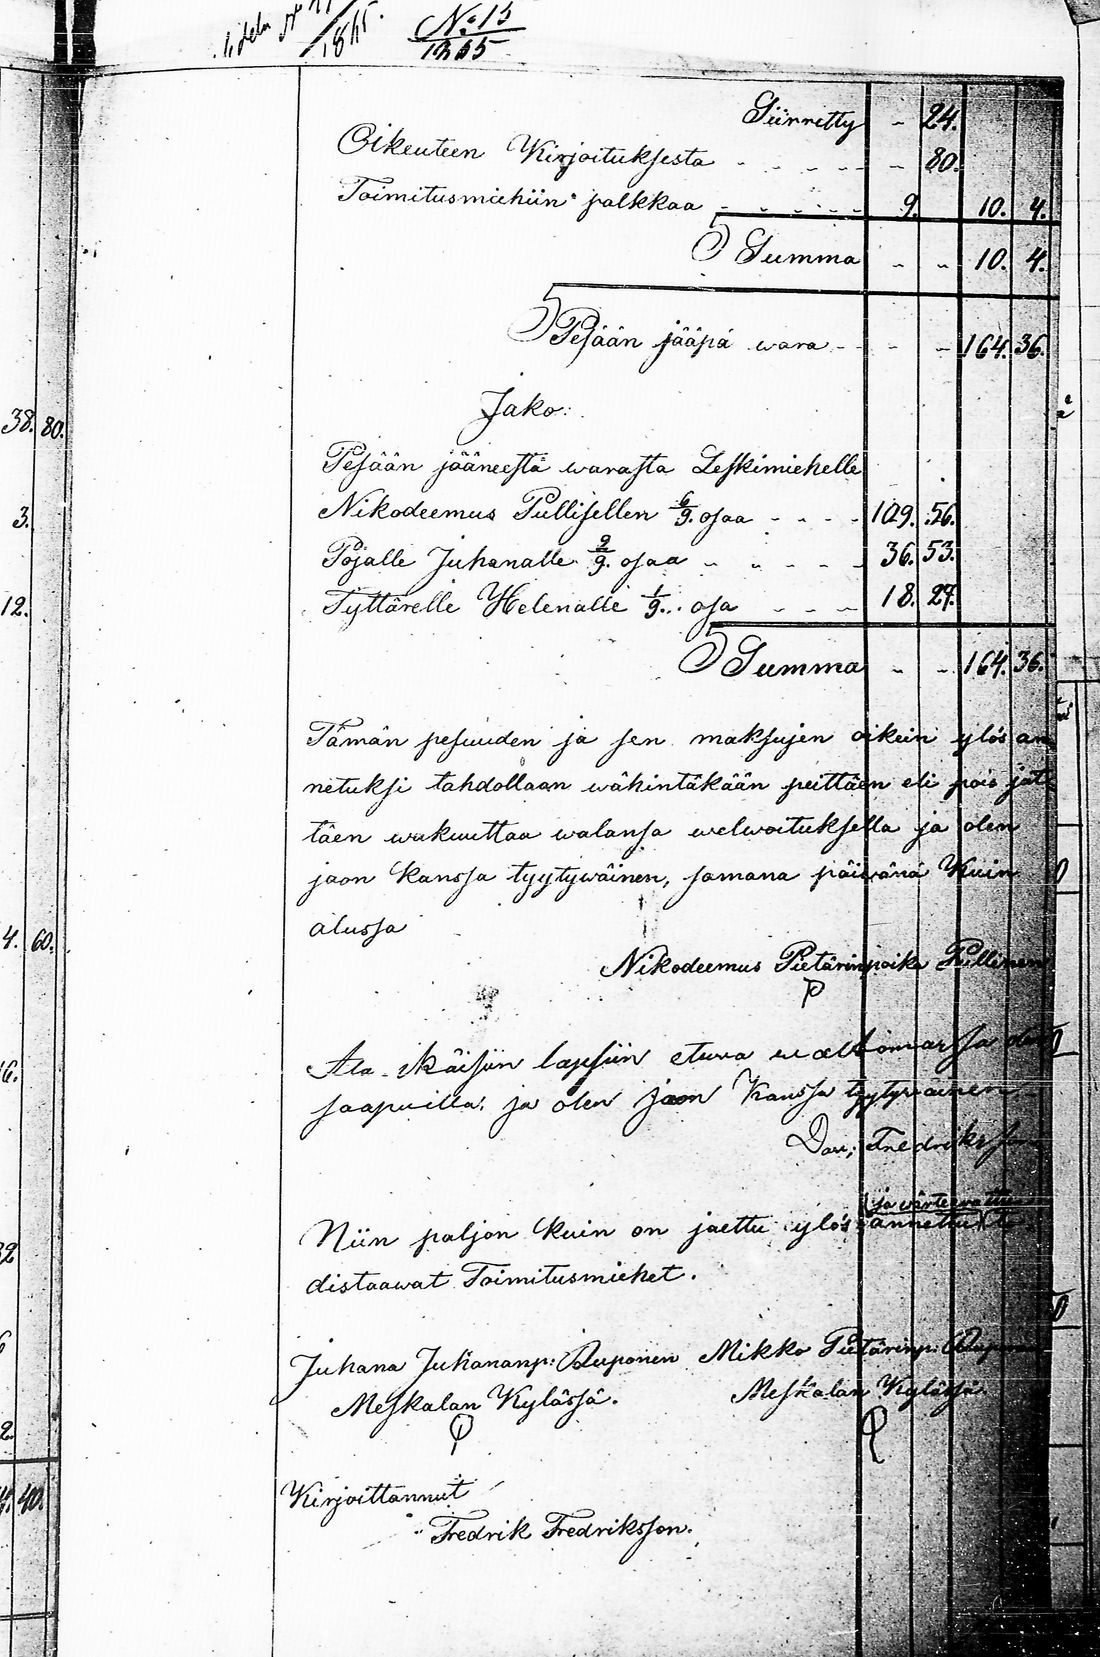 N:o 13
1865
Siirretty - 24.
Oikeuteen Kirjoituksesta - - - - - 80.
Toimitusmiehiin palkkaa - - - - - 9. 10. 4.
Summa - - 10. 4.
Pesään jääpä wara - - - 164. 36.
Jako:
Pesään jääneestä warasta Leskimiehelle
Nikodeemus Pullisellen 6/9. osaa - - - - 109. 56.
Pojalle Juhanalle 2/9. osaa - - - - - 36. 53.
Tyttärelle Helenalle 1/9. osa - - - 18. 27.
Summa - - 164. 36.
Tämän pesuuden ja sen maksujen oikein ylös an
netuksi tahdollaan wähintäkään peittäen eli pois jät
täen wakuuttaa walansa welwoituksella ja olen
jaon kanssa tyytywäinen, samana päiwänä Kuin
alussa
Nikodeemus Pietärinpoika Pullinen
Ala-ikäisiin lapsiin etuwa
saapuilla. ja olen jaon Kanssa tyytywäinen
Fredriksson
ja wärteerattu
Niin paljon kuin on jaettu ylös annettu to
distaawat Toimitusmiehet.
Juhana Juhananp: Ruponen Mikko Pietärinp: Ruponen
Meskalan Kylässä. Meskalan Kylässä
Kirjoittannut
Fredrik Fredriksson.
38. 80.
3.
12.
4. 60.
6.
2.
40.